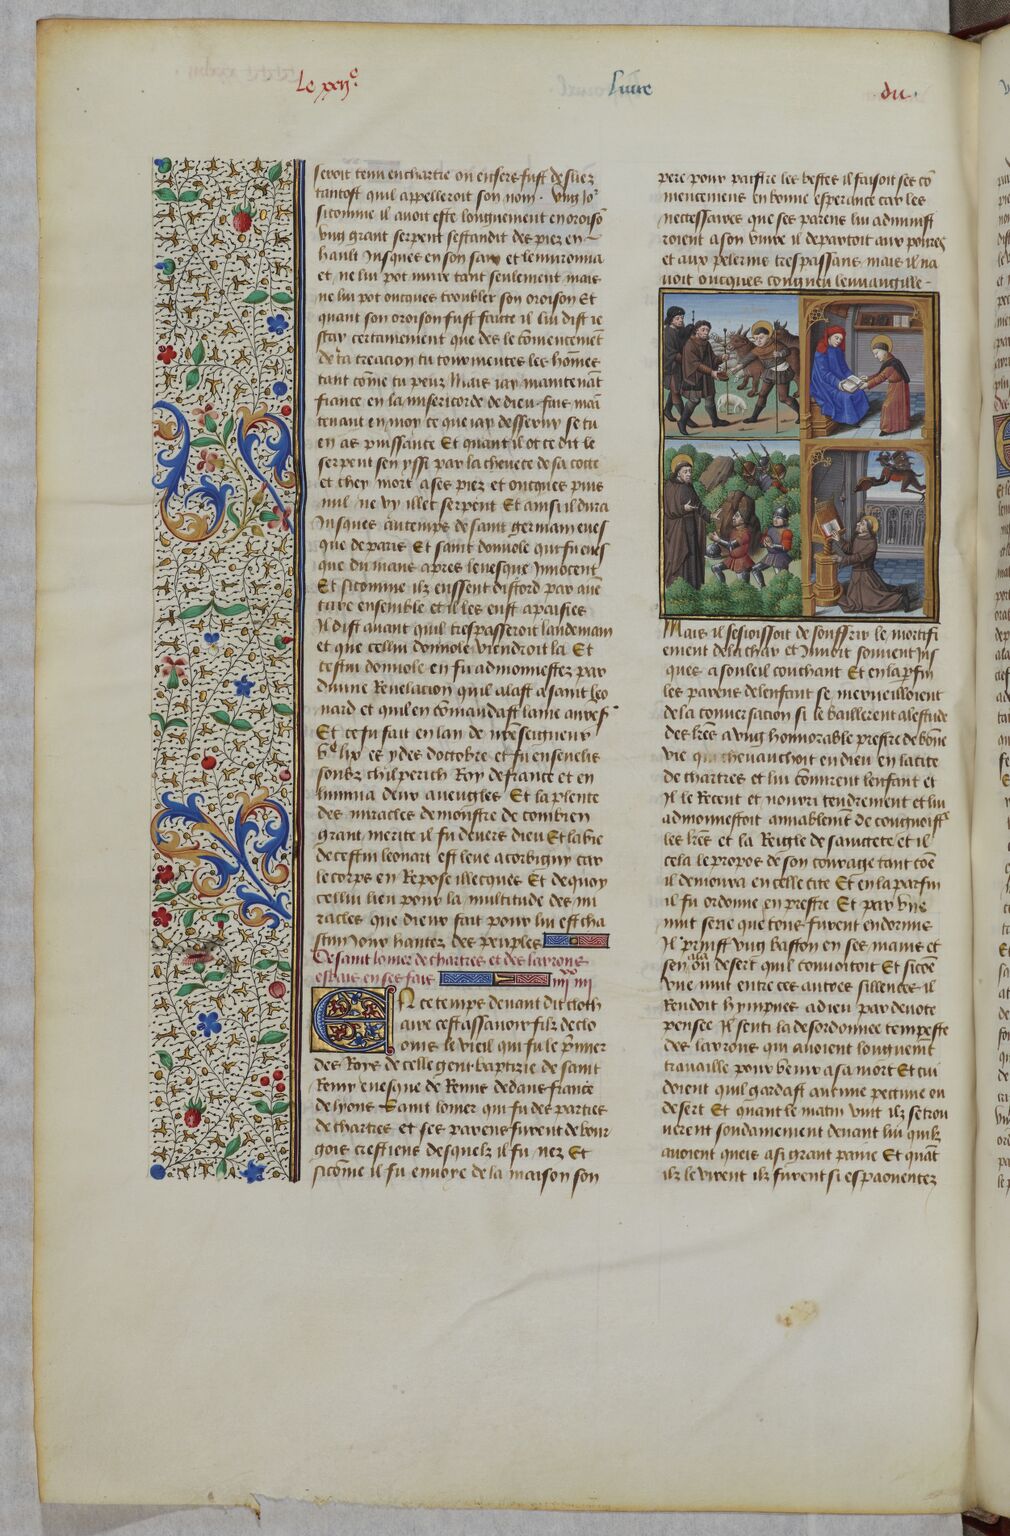 Le xxij.e
livre
du.
seroit tenu en chartre ou en fers fust desliez
tantost quil appelleroit son nom. Ung jor
sicomme il avoit este longuement en oroison
ung grant serpent sestandit des piez en
hault jusques en son sain et lenvironna
et ne lui pot nuire tant seulement mais
ne lui pot oncques troubler son oroison Et
quant son oroison fust faicte il lui dist je
scay certainement que des le commencement
de ta creacion tu tourmentes les hommes
tant comme tu peuz Mais jay maintenant
fiance en la misericorde de dieu fais main
tenant en moy ce que jay desservy se tu
en as puissance Et quant il ot ce dit le
serpent sen yssi par la chevece de sa cotte
et chey mort a ses piez et oncques puis
nul ne vy illec serpent Et ainsi il dura
jusques au temps de saint germain eves
que de paris Et saint domole qui fu eves
que du mans apres levesque Innocent
Et sicomme ilz eussent discord par aven
ture ensemble et il les eust apaisies
Il dist avant quil trespasseroit landemain
et que cellui domole viendroit la Et
cestui domole en fu admonnestez par
divine Revelacion quil alast a saint leo
nard et quil en commandast lame
Et ce fu fait en lan de nostre seigneur
vc lix es ydes doctobre et fu ensevelis
soubz chilperich Roy de france et en
lumina deux aveugles Et la plente
des miracles demonstre de combien
grant merite il fu devers dieu Et la vie
de cestui leonart est leue a corbigny car
le corps en Repose illecques Et de quoy
cellui lieu pour la multitude des mi
racles que dieux fait pour lui est cha
scun jour hantez des peuples
De saint lomer de chartres et des larrons
espars en ses fais
En ce temps devant dit cloth
aire cest assavoir filz de clo
ovis le vieil qui fu le premier
des Roys de celle gent baptizie de saint
Remy evesque de Reims dedans france
de lyons Saint lomer qui fu des parties
de chartres et ses parens furent de bour
gois crestiens desquelz il fu nez Et
sicomme il fu envoye de la maison son
pere pour paistre les bestes il faisoit ses com
mencemens en bonne esperance car les
necessaires que ses parens lui administ
roient a son vivre il departoit aux povres
et aux pelerins trespassans mais il na
voit oncques congneu leuvangille
Mais il sesjoissoit de souffrir le mortifi
ement de la char et junoit souvent jus
ques a souleil couchant Et en la parfin
les parens de lenfant se merveilloient
de la conversacion si le baillerent a lestude
des lettres a ung honnorable prestre de bonne
vie qui chevauchoit en dieu en la cite
de chartres et lui commirent lenfant et
Il le Recent et nourri tendrement et lui
admonnestoit amiablement de congnoistre
les lettres et la Reigle de sainctete et il
cela le propos de son courage tant comme
il demoura en celle cite Et en la parfin
il fu ordonne en prestre Et par une
nuit serie que tous furent endormis
Il prinst ung baston en ses mains et
sen ala ou desert quil convoitoit Et sicomme
une nuit entre ces autres sillences il
Rendoit hympnes a dieu par devote
pensee Il senti la desordonnee tempeste
des larrons qui avoient longuement
travaille pour venir a sa mort Et cui
doient quil gardast aucune pecune ou
desert Et quant le matin vint ilz se trou
verent soudainement devant lui quilz
avoient quis a si grant paine Et quant
ilz le virent ilz furent si espaouentez